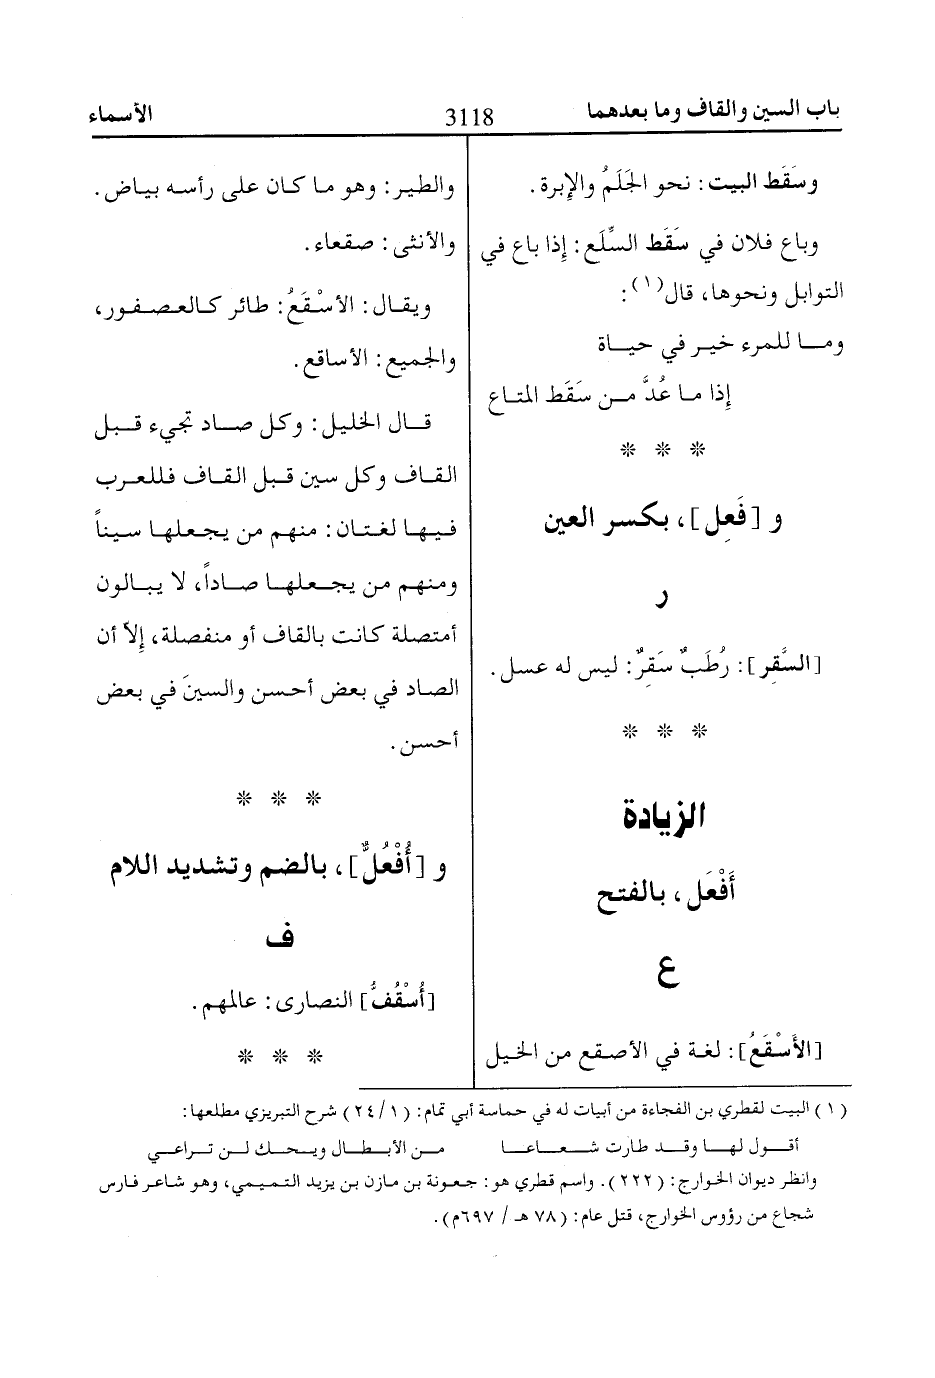 باب السين والقاف وما بعدهما 3118 الأسماء
وسَقَط البيت: نحو الجَلَمُ والإبرة.
وباع فلان في سَقَط السِّلَع: إذا باع في
التوابل ونحوها، قال(١):
ومـا للمرء خير في حياة
إذا ما عُدَّ من سَقَط المتاع
❊ ❊ ❊
و [فَعِل]، بكسر العين
ر
[السَّقِر]: رُطَبٌ سَقِرٌ: ليس له عسل.
❊ ❊ ❊
الزيادة
أَفْعَل، بالفتح
ع
[الأَسْقَعُ]: لغة في الأصقع من الخيل
والطير: وهو ما كان على رأسه بياض.
والأنثى: صقعاء.
ويقال: الأسْقَعُ: طائر كالعصفور،
والجميع: الأساقع.
قال الخليل: وكل صاد تجيء قبل
القاف وكل سين قبل القاف فللعرب
فيها لغتان: منهم من يجعلها سيناً
ومنهم من يجعلها صاداً، لا يبالون
أمتصلة كانت بالقاف أو منفصلة، إلاّ أن
الصاد في بعض أحسن والسينَ في بعض
أحسن.
❊ ❊ ❊
و [أُفْعُلٌّ]، بالضم وتشديد اللام
ف
[أُسْقُفُّ] النصارى: عالمهم.
❊ ❊ ❊
(١) البيت لقطري بن الفجاءة من أبيات له في حماسة أبي تمام: (٢٤/١) شرح التبريزي مطلعها:
أقول لها وقد طارت شعاعا من الأبطال ويحك لن تراعي
وانظر ديوان الخوارج: (٢٢٢). واسم قطري هو: جعونة بن مازن بن يزيد التميمي، وهو شاعر فارس
شجاع من رؤوس الخوارج، قتل عام: (٧٨ هـ / ٦٩٧م).